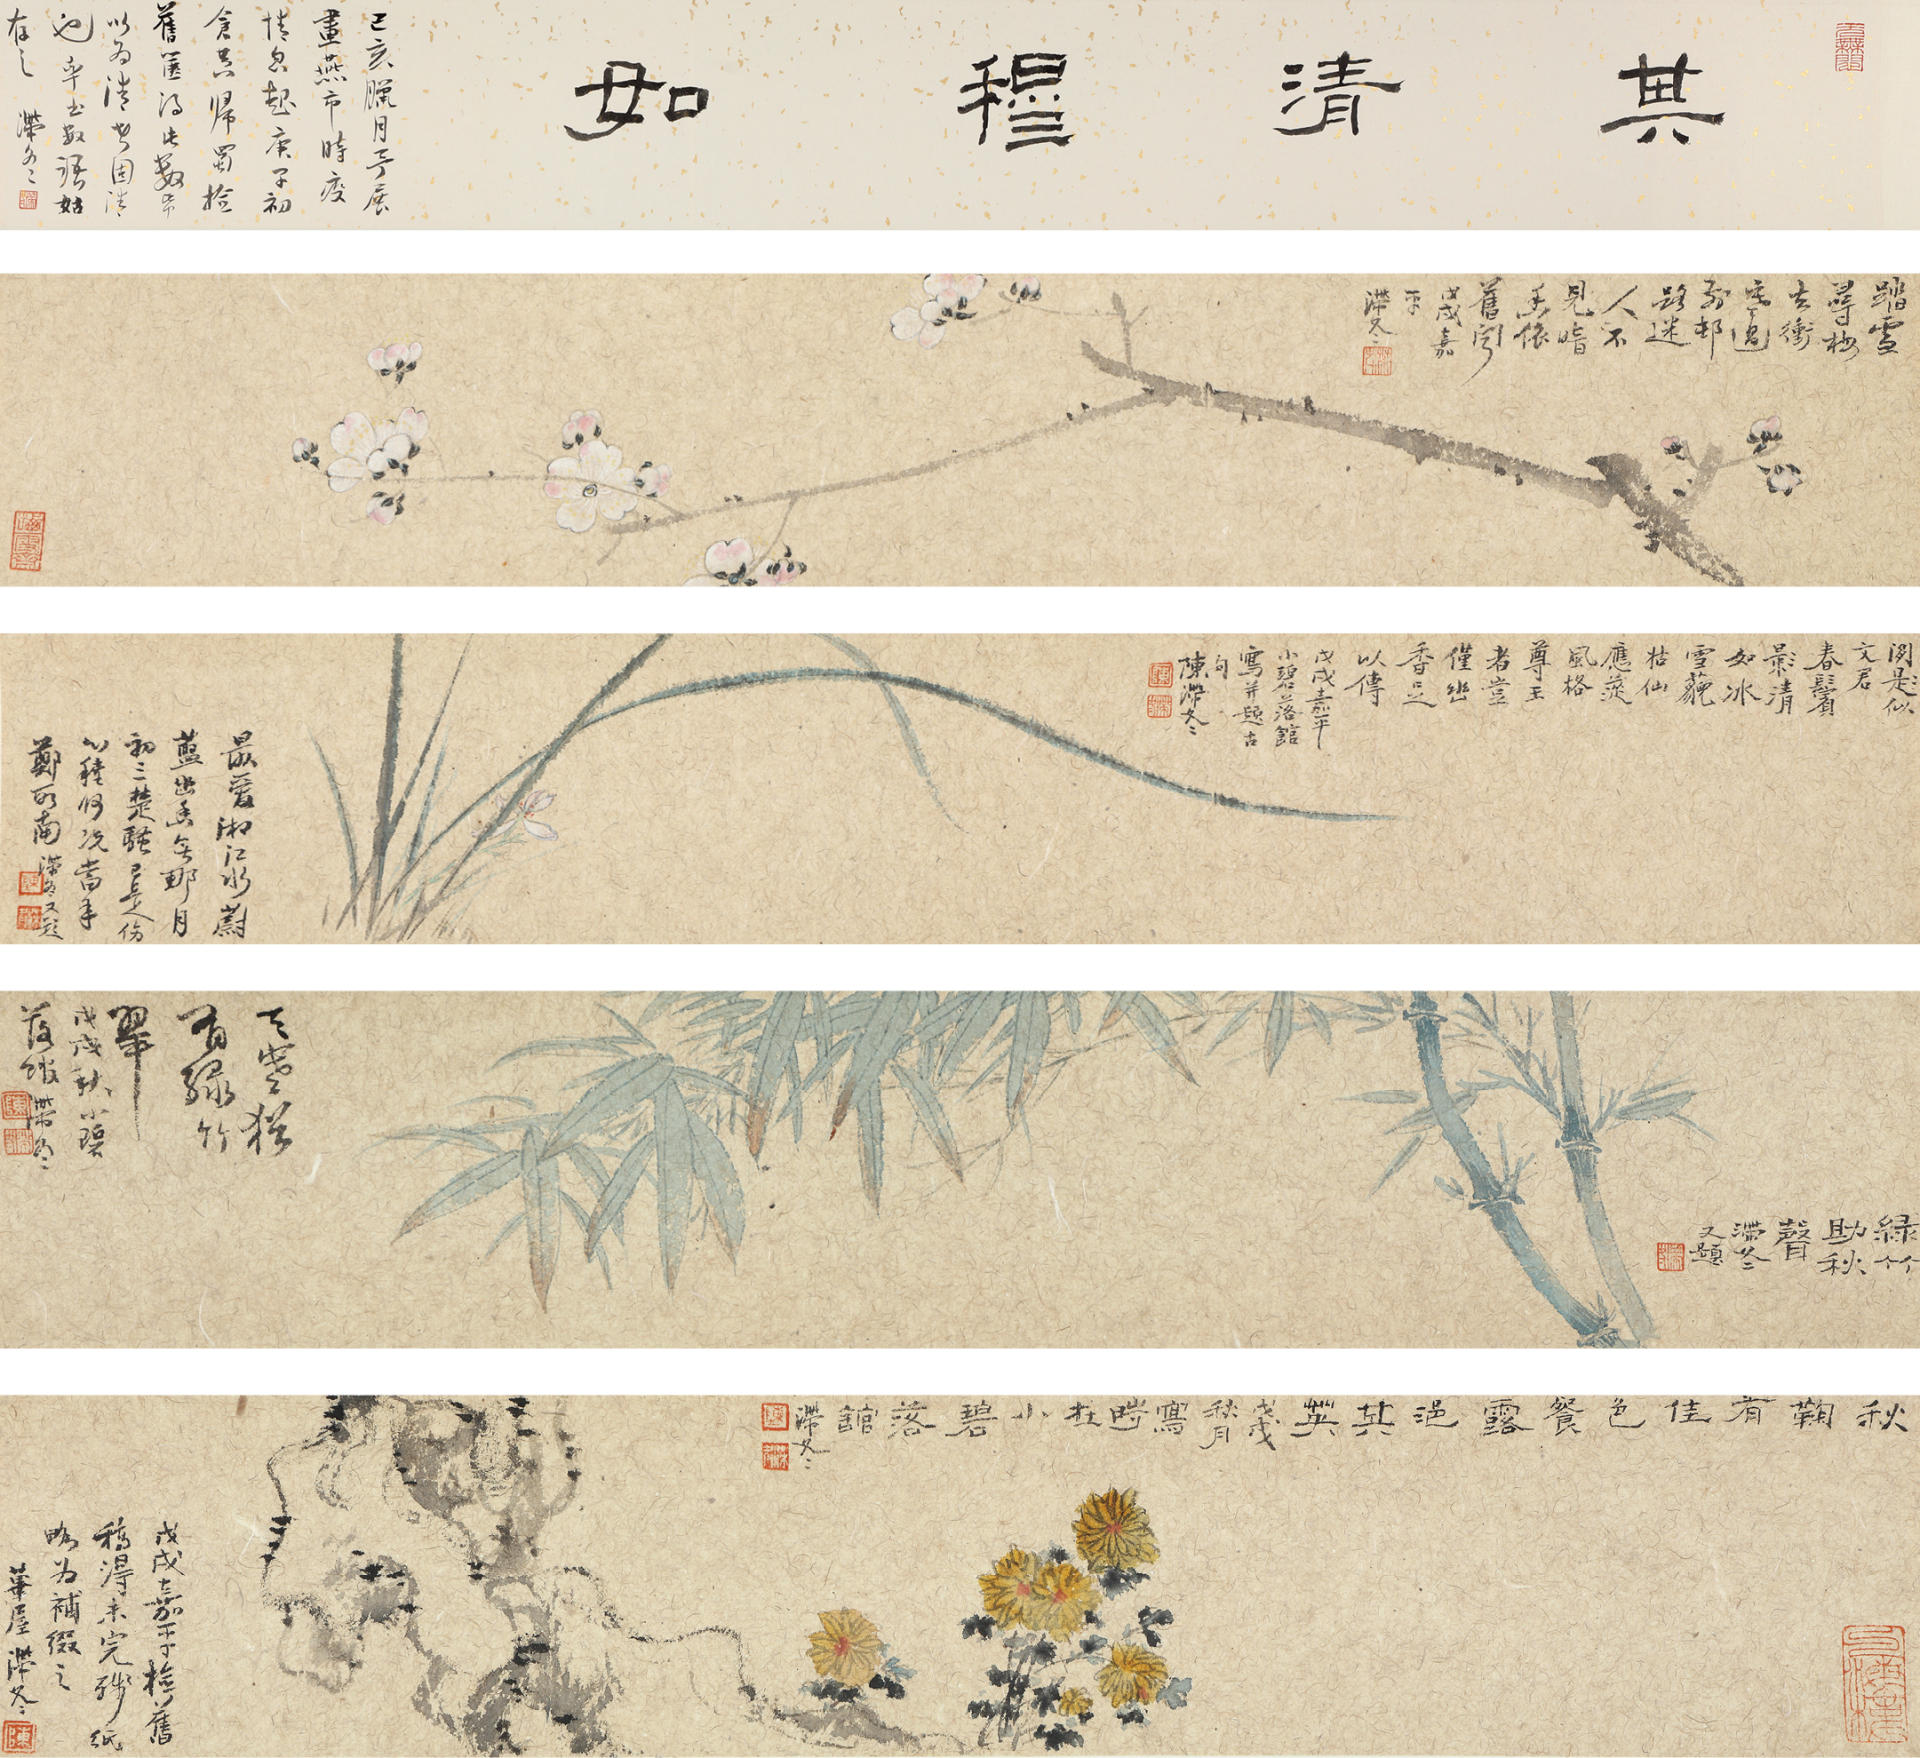 其清穆如
己亥臘月予展
畫燕市時疫
情忽起庚子初
倉皇歸蜀撿
舊匧得此數本
以為清者固清
也率書數語姑
存之
滯冬
踏雪
尋梅
去衝
寒過
野邨
路迷
人不
見暗
香依
舊聞
戊戌嘉
平
滯冬
閑影似
文君
春鬢
影清
如冰
雪藐
枯仙
應羨
風格
尊王
者豈
僅幽
香足
以傳
戊戌嘉平
小碧落館
寫并題古
句
陳滯冬
最愛湘江水蔚
藍幽香無那月
初三楚騷已是人傷
心種何況當年
鄭所南
滯冬又題
綠竹
助秋
聲
滯冬
又題
天寒猶
有綠竹
翠
戊戌秋小碧
落館
滯冬
秋鞠有佳色餐露浥其英
戊戌
秋月
寫時在小碧落館
滯冬
戊戌嘉平撿舊
稿得未完殘紙
略為補綴之
蓽屋滯冬